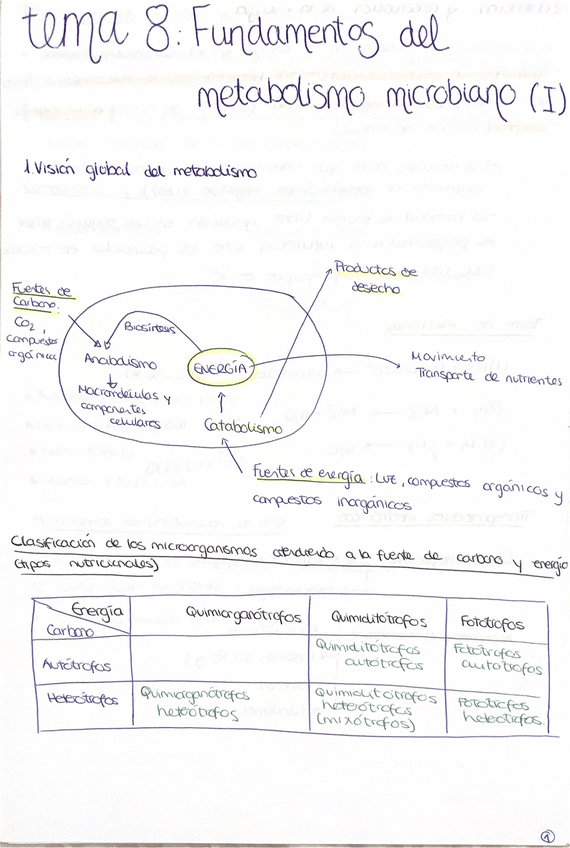 tema 8: Fundamentos del
metabolismo microbiano (I)
1. Visión global del metabolismo
Productos de
desecho
Fuentes de
Carbono:
CO2,
compuestos
orgánicos
Biosíntesis
Anabolismo
Macromoléculas y
componentes
celulares
ENERGÍA
Catabolismo
Movimiento
Transporte de nutrientes
Fuentes de energía: Luz, compuestos orgánicos y
compuestos inorgánicos
Clasificación de los microorganismos atendiendo a la fuente de carbono y energía
(tipos nutricionales)
Energía
Carbono
Quimiorganótrofos
Quimiolitótrofos
Fotótrofos
Autótrofos
Quimiolitótrofos
autótrofos
Fotótrofos
autótrofos
Heterótrofos
Quimiorganótrofos
heterótrofos
Quimiolitótrofos
heterótrofos
(mixótrofos)
Fotótrofos
heterótrofos
1